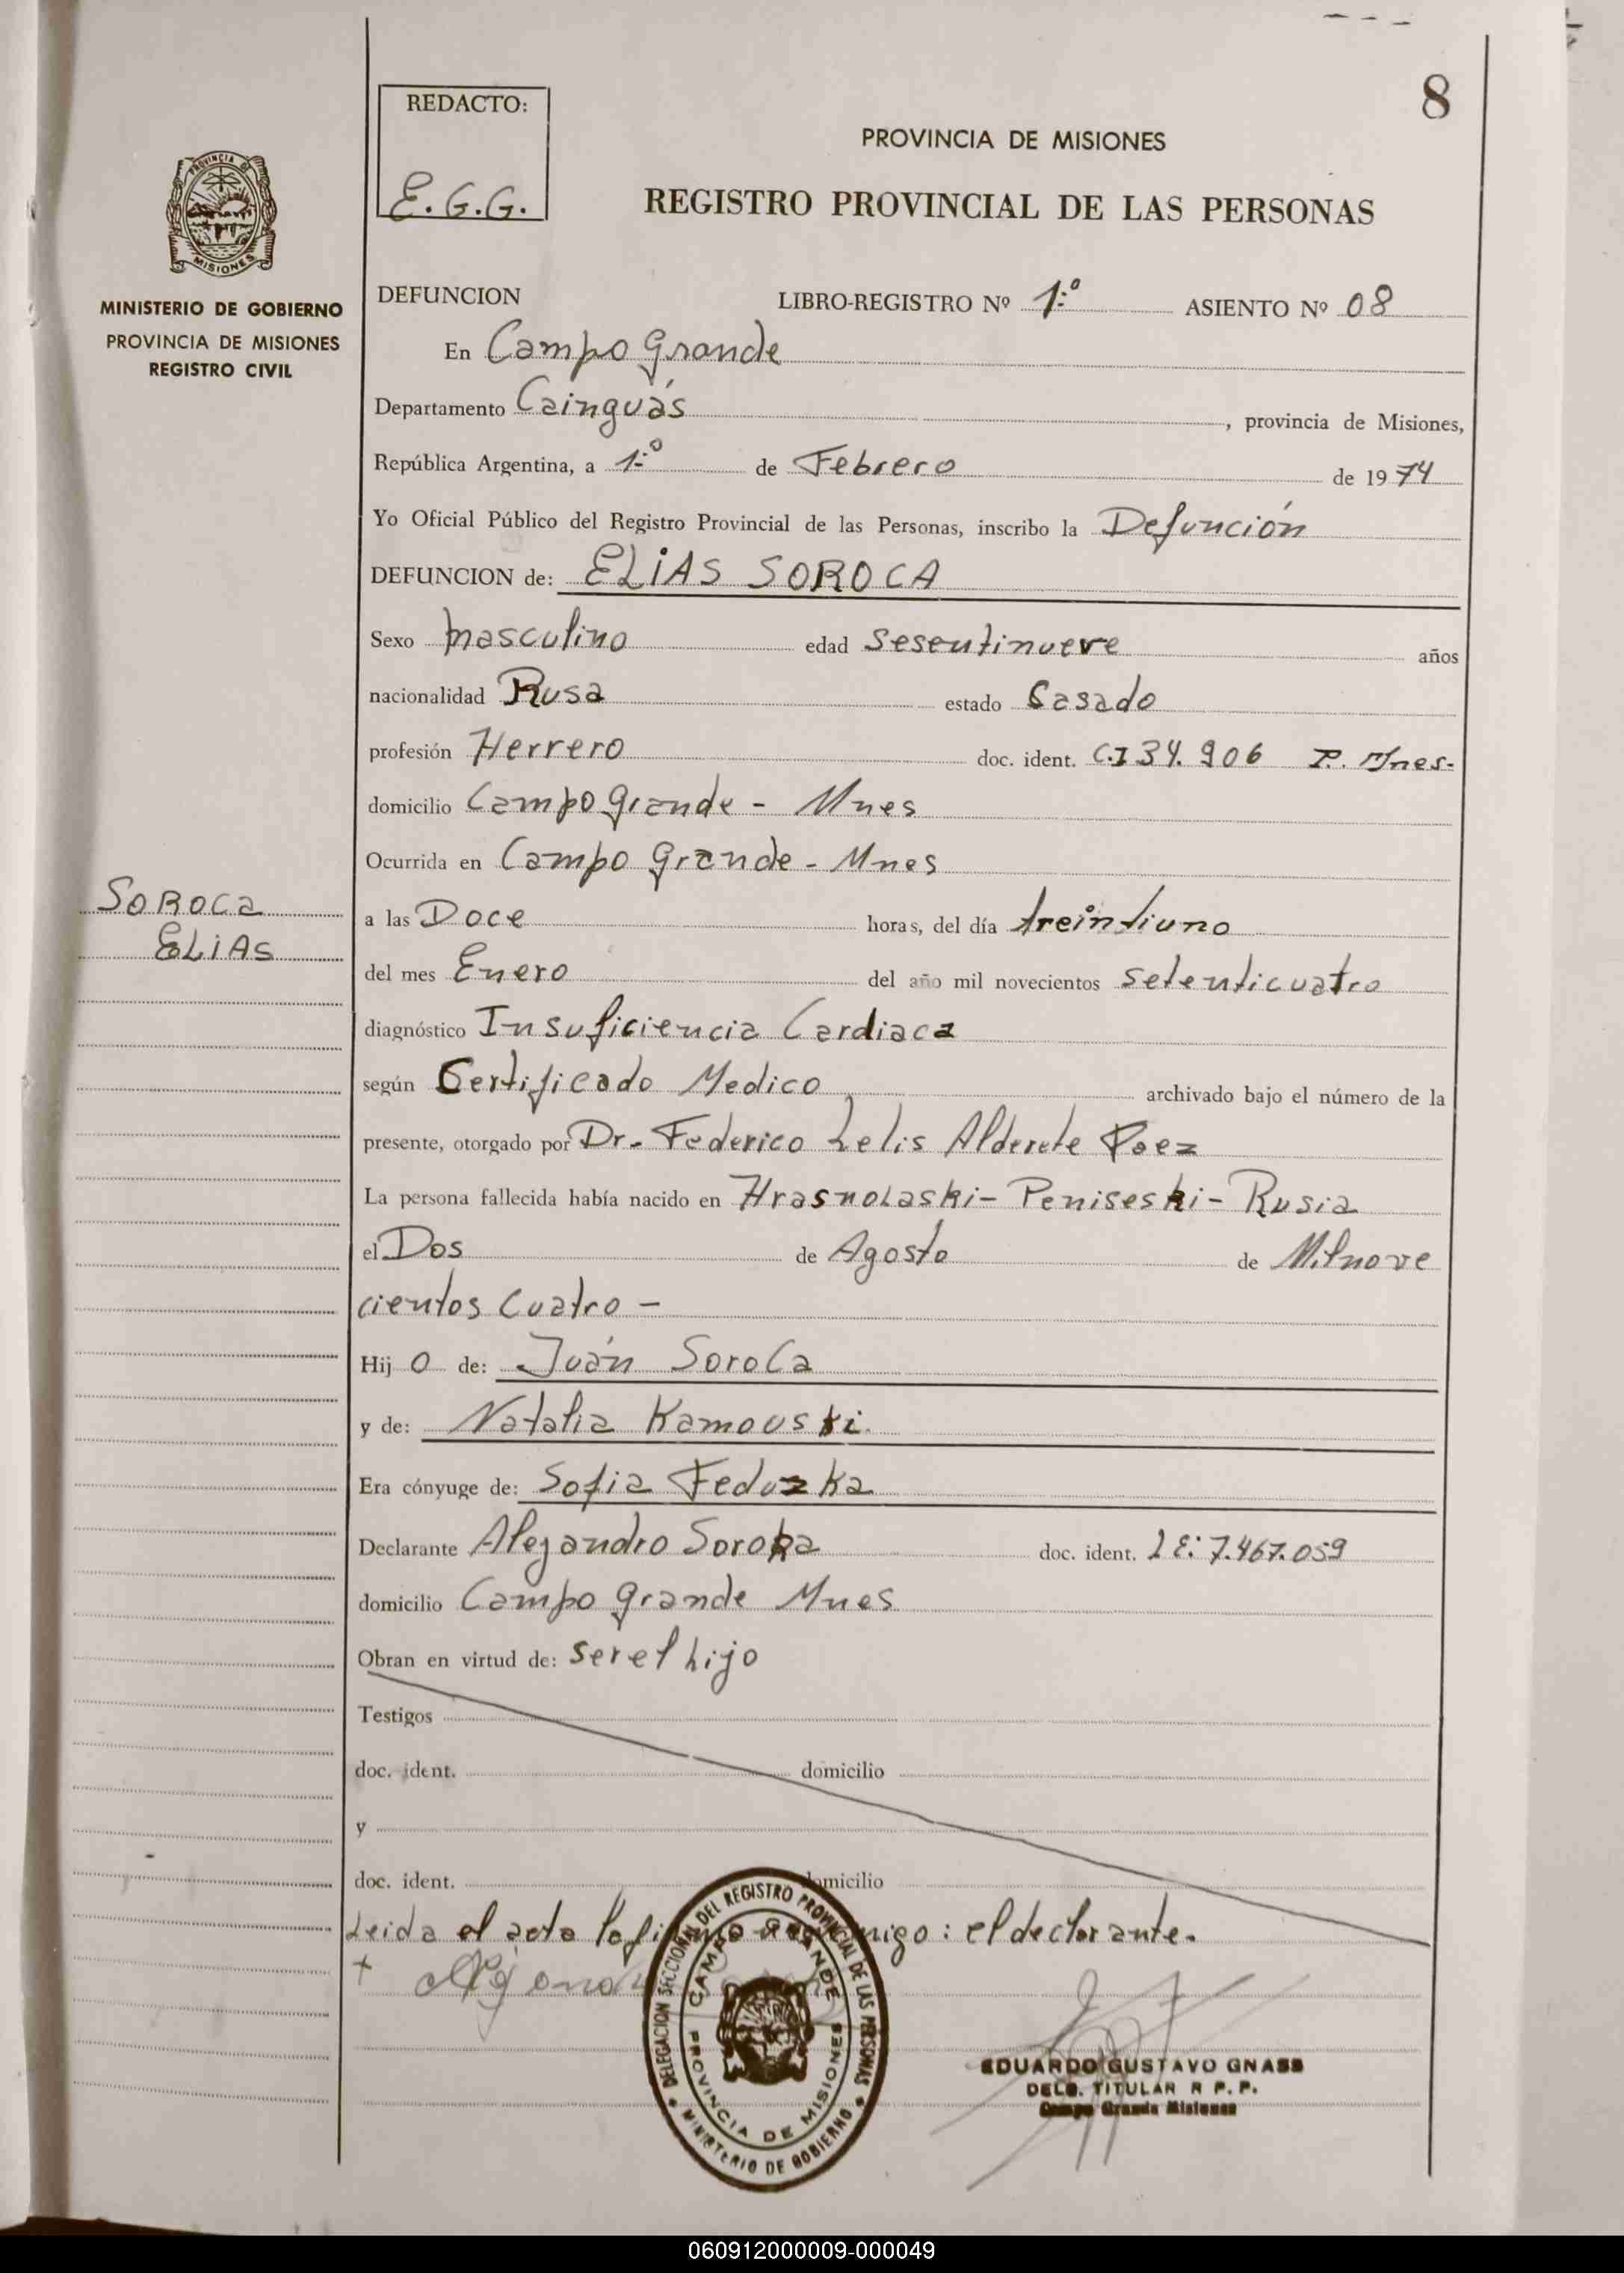 8
REDACTO:
E.G.G.
PROVINCIA DE MISIONES
REGISTRO PROVINCIAL DE LAS PERSONAS
PROVINCIA DE
MISIONES
MINISTERIO DE GOBIERNO
PROVINCIA DE MISIONES
REGISTRO CIVIL
DEFUNCION LIBRO-REGISTRO Nº 1º ASIENTO Nº 08
En Campo Grande
Departamento Cainguás, provincia de Misiones,
República Argentina, a 1º de Febrero de 1974
Yo Oficial Público del Registro Provincial de las Personas, inscribo la Defunción
DEFUNCION de: ELIAS SOROCA
Sexo masculino edad Sesentinueve años
nacionalidad Rusa estado Casado
profesión Herrero doc. ident. C.I 34.906 P. Mnes.
domicilio Campo Grande - Mnes
Ocurrida en Campo Grande - Mnes
SOROCa
ELiAS
a las Doce horas, del día treintiuno
del mes Enero del año mil novecientos setenticuatro
diagnóstico Insuficiencia Cardiaca
según Certificado Medico archivado bajo el número de la
presente, otorgado por Dr. Federico Lelis Alderete Poez
La persona fallecida había nacido en Hrasnolaski - Peniseski - Rusia
el Dos de Agosto de Milnove
cientos Cuatro -
Hij o de: Juán Soroca
y de: Natalia Kamouski.
Era cónyuge de: Sofia Feduzka
Declarante Alejandro Soroka doc. ident. LE: 7.467.059
domicilio Campo Grande Mnes
Obran en virtud de: ser el hijo
Testigos
doc. ident. domicilio
y
doc. ident. domicilio
Leida el acta la conmigo: el declarante.
+ Alejandro
DELEGACION SECCIONAL DEL REGISTRO PROVINCIAL DE LAS PERSONAS
CAMPO GRANDE
PROVINCIA DE MISIONES
MINISTERIO DE GOBIERNO
EDUARDO GUSTAVO GNASS
DELG. TITULAR R P. P.
Campo Grande Misiones
060912000009-000049